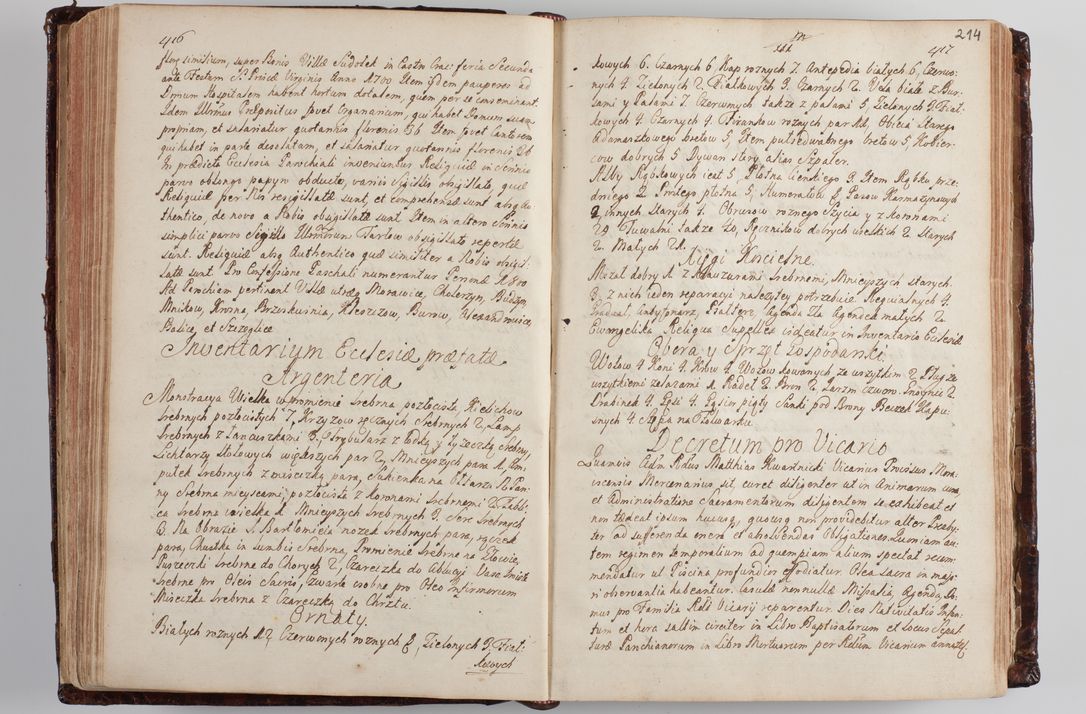 416
simitium, super Bonis Villæ Sudołek in Castro Crac: feria Secunda
ante Festum S. Priscæ Virginis Anno 1700 Item ijdem pauperes ad
Domum Hospitalem habent hortum dotalem, quem per se conseminant.
Idem Præpositus fovet Organarium, qui habet Domum suam
propriam, et salariatur quotannis florenis 56 Item fovet Cantorem
qui habet in parte desolatam, et salariatur quotannis florenis 36
In prædicta Ecclesia Parochiali inveniuntur Reliquiæ in Scrinio
parvo oblongo papyro obducto, variis Sigillis obsigillato, quæ
Reliquiæ per Nos resigillatæ sunt, et comprehensæ sunt absq Au
thentico, de novo a Nobis obsigillatæ sunt Item in altero Scrinio
simplici parvo Sigillo Tarłow obsigillato repertæ
sunt. Reliquiæ absq Authentico quæ similiter a Nobis obsigil
latæ sunt Pro Confessione Paschali numerantur Personæ 1800
Ad Parochiam pertinent Villæ utraq Morawica, Cholerzyn, Budzyn,
Mnikow, Krona, Brzoskwinia, Kleszczow, Burow, Alexandrowice,
Balice, et Szczeglice
Inventarium Ecclesiæ præfatæ
Argenteria
Monstracya Wielka w promienie srebrna pozłocista, Kielichow
srebrnych pozłocistych 7, Krzyzow ręcznych srebrnych 2, Lamp
srebrnych z Łancuszkami 3, Trybularz z łodką y łyzeczką srebrny,
Lichtarzy stołowych większych par 2, Mnieyszych para 1, Am
pułek srebrnych z miseczką para, Sukienka na Ołtarzu N Pan
ny Srebrna mieyscami pozłocista z koronami srebrnemi 2 Tabli
ca srebrna wielka 1 Mnieyszych srebrnych 9. Serc srebrnych
3. Na Obrazie S. Bartłomieia nozek srebrnych para, rączek
para, Chustka in lumbis srebrna, Promienie srebrne na Głowie,
Puszeczki srebrne do Chorych 2, Czareczka do Ablucyi Vasc̃
srebrne pro Oleis Sacris, Czwarte osobne pro Oleo Infirmorum
Miseczka srebrna z Czareczką do Chrztu.
Ornaty.
Białych roznych 12, Czerwonych roznych 8, Zielonych 3. Fiał:
kowych
214
417
kowych 6. Czarnych 6, Kap roznych 7. Antepedia białych 6, Czerwo:
nych 4 Zielonych 2 Fiałkowych 3. Czarnych 2. Vela białe z Bur
sami y Pałami 7 Czerwonych takze z pałami 5, Zielonych 3 Fiał
kowych 4 Czarnych 4 Firankow roznych par 12, Obicia Starego
Adamaszkowego bretow 5, Item pułjedwabnego bretow 5, Kobier
cow dobrych 5 Dywan stary alias Szpaler.
Alby Rąbkowych iest 5, Płotna cienskiego 3 Item Rąbku prze
dniego 2 Prostego płotna 5, Humerałow 8 Pasow Karmazynowych
2 innych starych 4. Obrusow roznego Szycia y z koronami
29 Tuwalni takze 20, Ręcznikow dobrych wielkich 2 Starych
2 Małych 21.
Xięgi Koscielne
Mszał dobry 1 z Klauzurami srebrnemi, Mnieyszych starych
3, z nich ieden reparacyi należytey potrzebuie Requialnych 4
Gradual, Antyfonarz, Psałterz, Agenda 1 Agendek małych 2
Ewangeliki Reliqua Supellex videatur in Inventario Ecclesiæ
Obora y sprzęt Gospodarski
Wołow 4 Koni 4 Krow 4 Wozow kowanych ze wszytkim 2 Pług ze
wszytkiemi zelazami 1 Radeł 2 Bron 2 Jarzm czworn: Snoynic 2
Drabinek 4 Gęsi 4 Gęsior piąty Sanki pod Brony Beczek Kapu
snych 4 na Folwarku.
Decretum pro Vicario
Quamvis Adm Rndus Matthias Kwartnicki Vicarius Provisus Mora
viscensis Mercenarius sit, curet diligenter ut in Animarum cura,
et Administratione Sacramentorum diligentem se exhibeat et
non tædeat ipsum hucusq, quousq non providebitur alter Presby
ter ad sufferenda onera et absolvendas Obligationes. Quoniam au
tem regimen temporalium ad quempiam alium spectat recom
mendatur ut Piscina profundior effodiatur. Olea sacra in majo
ri observantia habeantur. Casulæ nonnullæ Missalia, Agenda, Do
mus pro Familia Rndi Vicarij reparentur. Dies Nativitatis Infan
tum et hora saltim circiter in Libro Baptisatorum et Locus Sepul
turæ Parochianorum in Libro Mortuorum per Rndum Vicarium